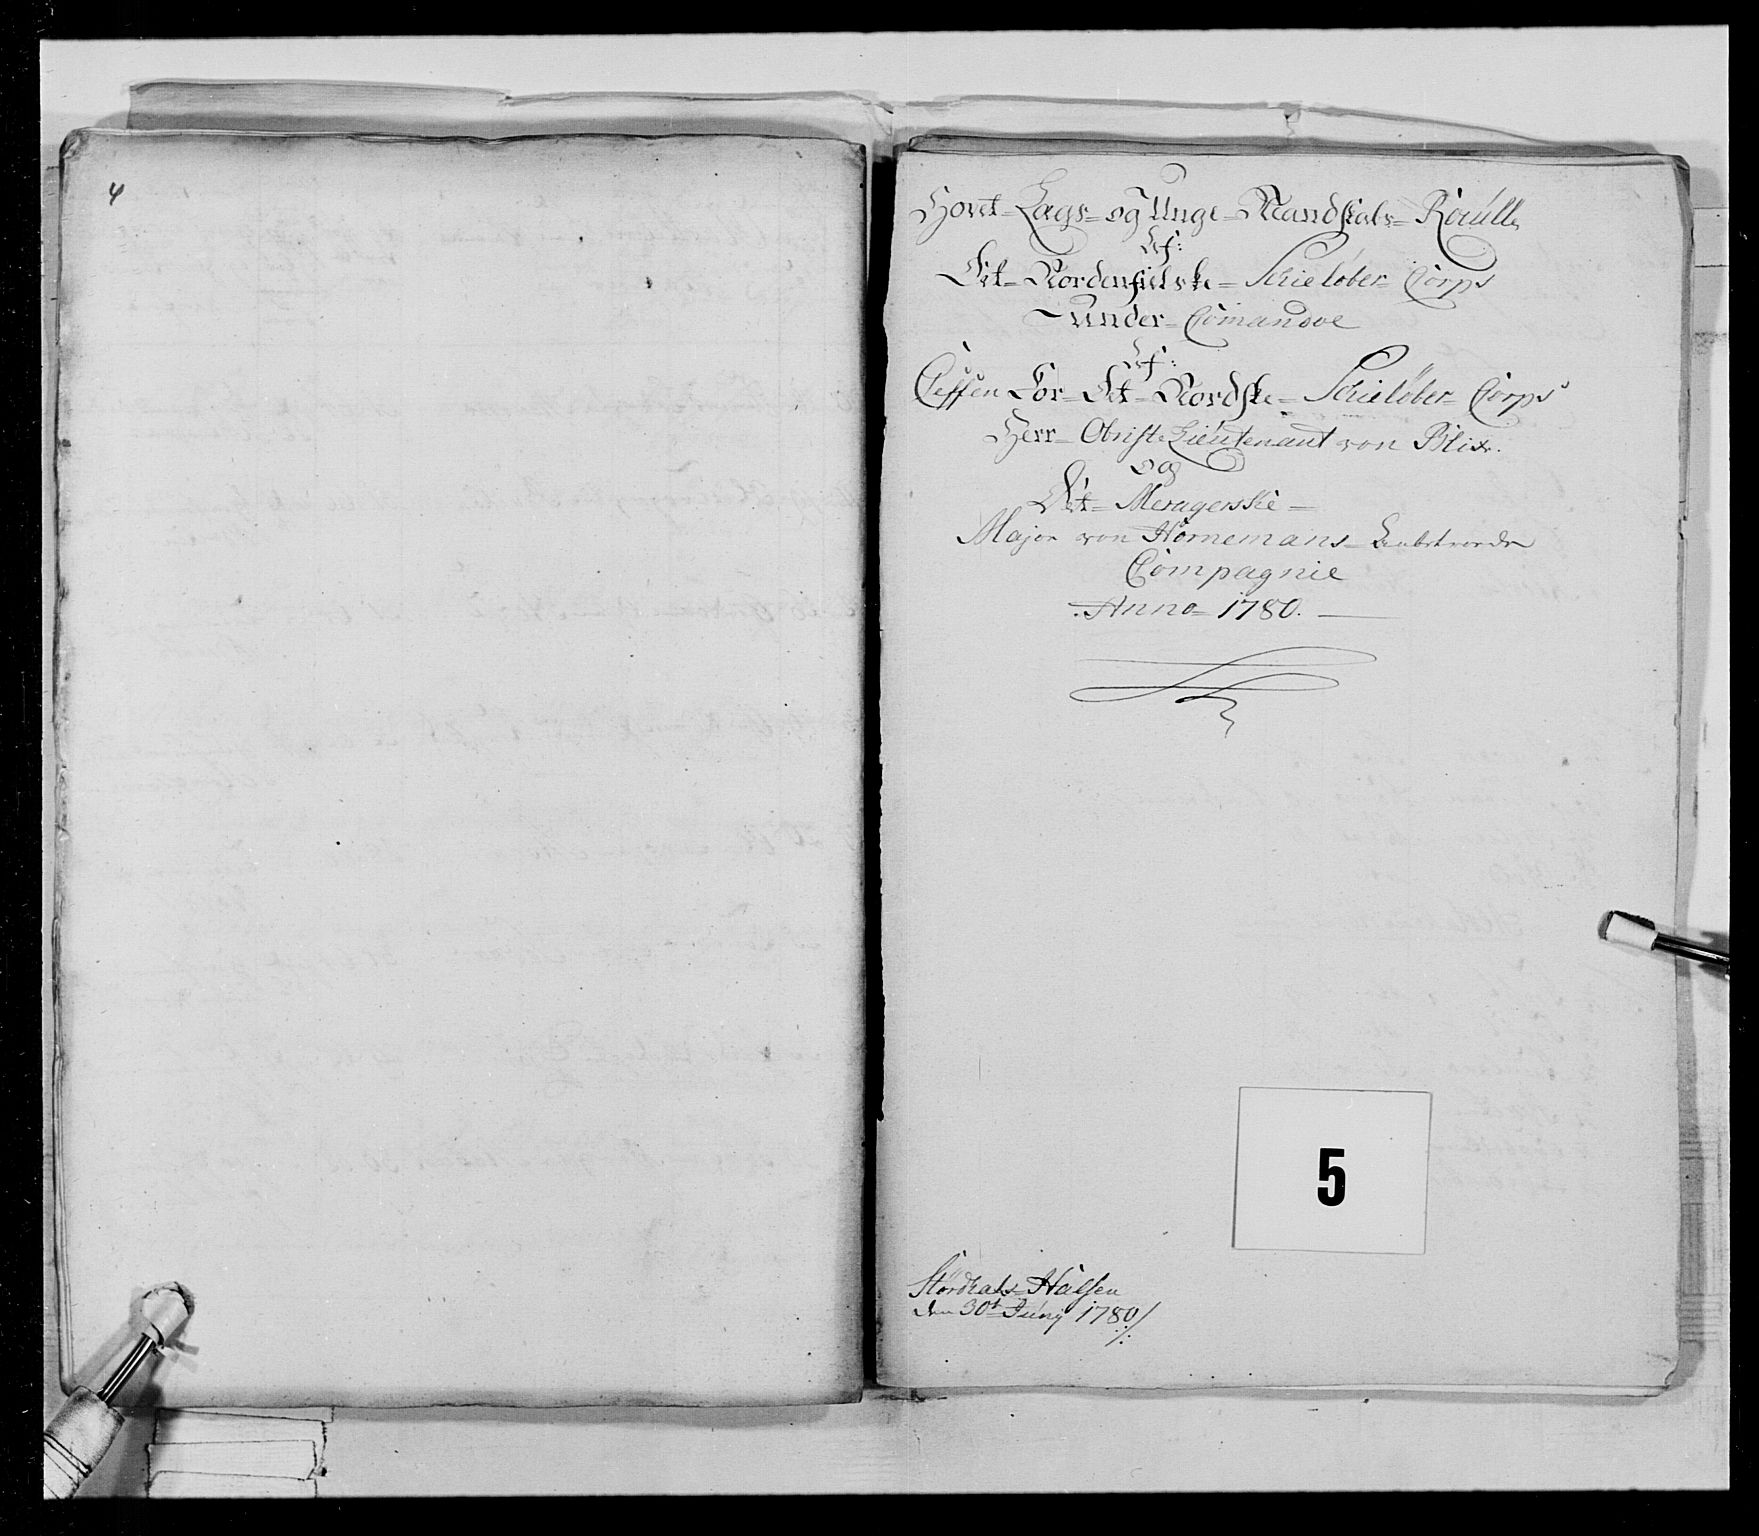 4
Hovet-Lags-og Unge-Mandskabs-Roulle
Af:
Det-Nordenfielske-Schieløber-Corps
Under-Comando
Af:
Cheffen For-Det-Nordske-Schieløber-Corps
Herr-Obriste Lieutenant von Blix.
og
Det-Meragerske-
Major von Hornemans-
Compagnie
Anno-1780.
5
Størdals-Halsen
den 30t Junij 1780/